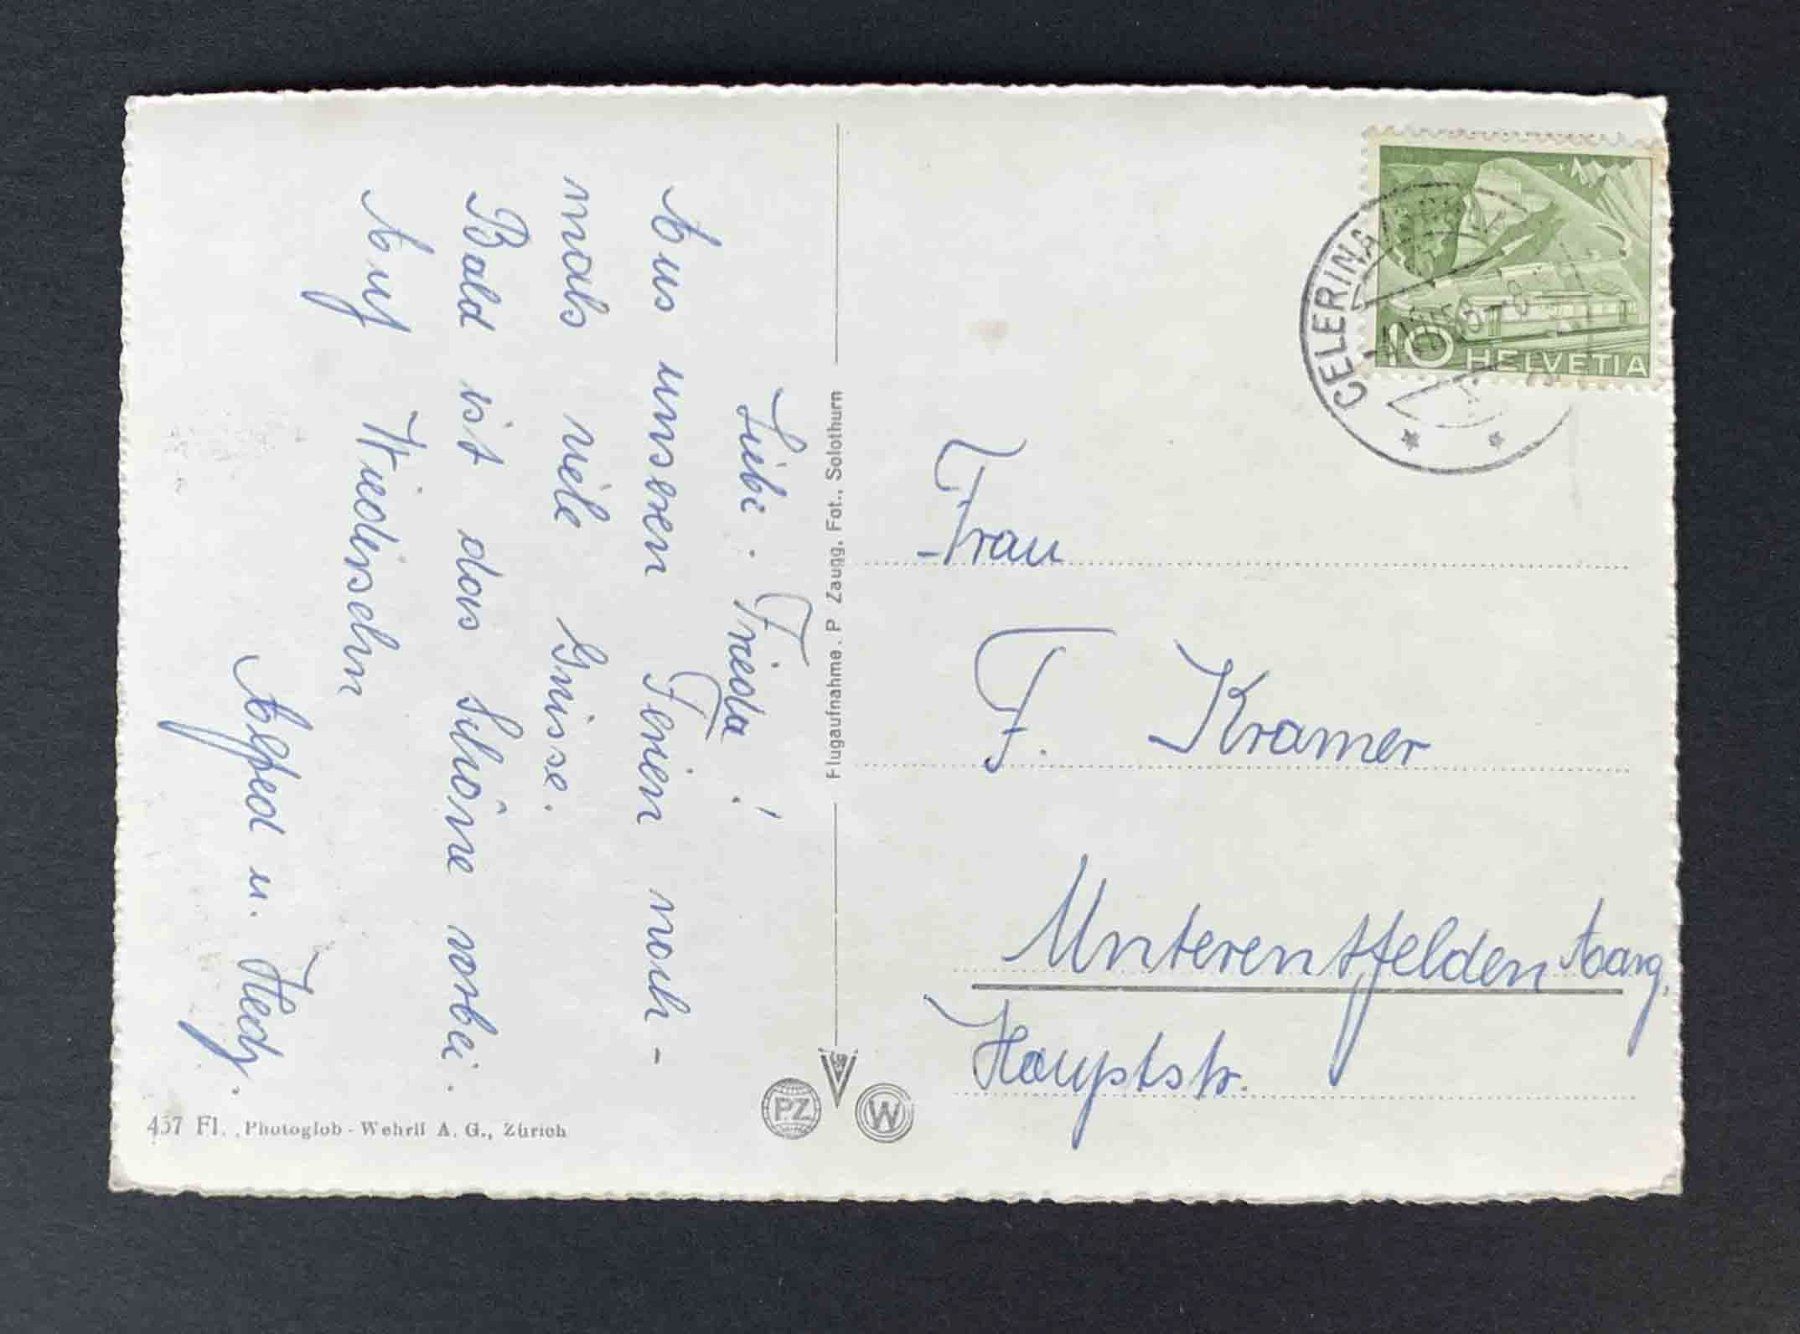 Liebe Frieda!
Aus unseren Ferien noch-
mals viele Grüsse.
Bald ist das Schöne vorbei.
Auf Wiedersehn
Alfred u. Hedy.
Flugaufnahme. P. Zaugg, Fot., Solothurn
CELERINA
10 HELVETIA
Frau
F. Kramer
Unterentfelden Aarg.
Hauptstr.
PZ
W
457 Fl. Photoglob-Wehrli A. G., Zürich